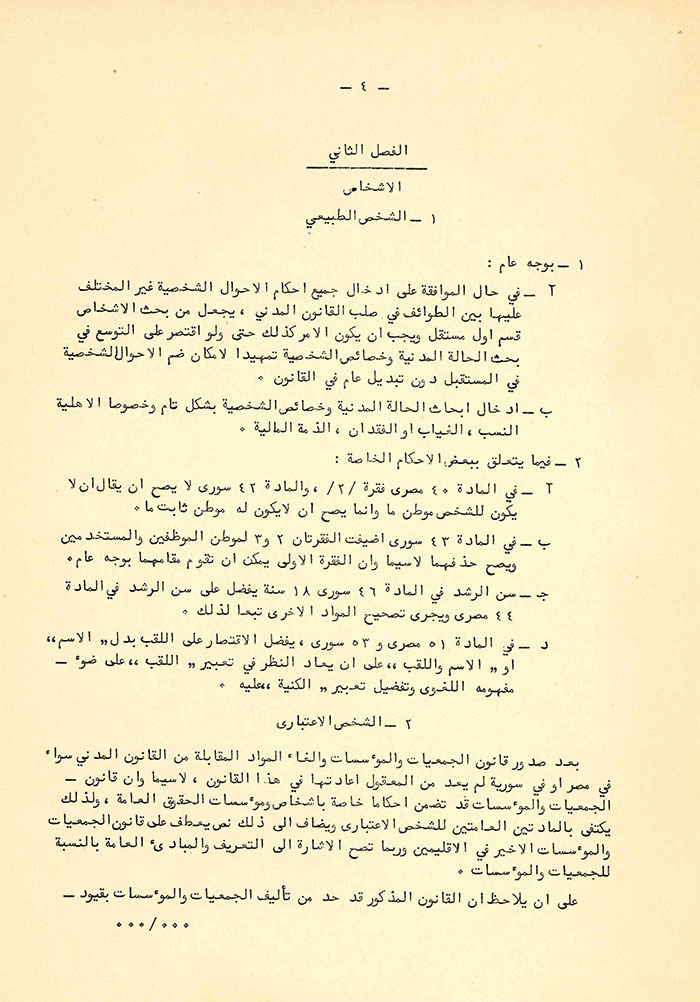 — ٤ —
الفصل الثاني
الاشخاص
١ — الشخص الطبيعي
١ — بوجه عام :
آ — في حال الموافقة على ادخال جميع احكام الاحوال الشخصية غير المختلف
عليها بين الطوائف في صلب القانون المدني ، يجعل من بحث الاشخاص
قسم اول مستقل ويجب ان يكون الامر كذلك حتى ولو اقتصر على التوسع في
بحث الحالة المدنية وخصائص الشخصية تمهيدا لامكان ضم الاحوال الشخصية
في المستقبل دون تبديل عام في القانون ٠
ب — ادخال ابحاث الحالة المدنية وخصائص الشخصية بشكل تام وخصوصا الاهلية
النسب ، الغياب او الفقدان ، الذمة المالية ٠
٢ — فيما يتعلق ببعض الاحكام الخاصة :
آ — في المادة ٤٠ مصرى فقرة /٢/ ، والمادة ٤٢ سورى لا يصح ان يقال ان لا
يكون للشخص موطن ما وانما يصح ان لايكون له موطن ثابت ما ٠
ب — في المادة ٤٣ سورى اضيفت الفقرتان ٢ و٣ لموطن الموظفين والمستخدمين
ويصح حذفهما لاسيما وان الفقرة الاولى يمكن ان تقوم مقامهما بوجه عام ٠
جـ — سن الرشد في المادة ٤٦ سورى ١٨ سنة يفضل على سن الرشد في المادة
٤٤ مصرى ويجرى تصحيح المواد الاخرى تبعا لذلك ٠
د — في المادة ٥١ مصرى و ٥٣ سورى ، يفضل الاقتصار على اللقب بدل „ الاسم ،،
او „ الاسم واللقب ،، على ان يعاد النظر في تعبير „ اللقب ،، على ضوء —
مفهومه اللغوى وتفضيل تعبير „ الكنية ،، عليه ٠
٢ — الشخص الاعتبارى
بعد صدور قانون الجمعيات والموءسسات والغاء المواد المقابلة من القانون المدني سواء
في مصر او في سورية لم يعد من المعقول اعادتها في هذا القانون ، لاسيما وان قانون —
الجمعيات والموءسسات قد تضمن احكاما خاصة باشخاص وموءسسات الحقوق العامة ، ولذلك
يكتفى بالمادتين العامتين للشخص الاعتبارى ويضاف الى ذلك نص يعطف على قانون الجمعيات
والموءسسات الاخير في الاقليمين وربما تصح الاشارة الى التعريف والمبادىء العامة بالنسبة
للجمعيات والموءسسات ٠
على ان يلاحظ ان القانون المذكور قد حد من تأليف الجمعيات والموءسسات بقيود —
٠٠٠/٠٠٠